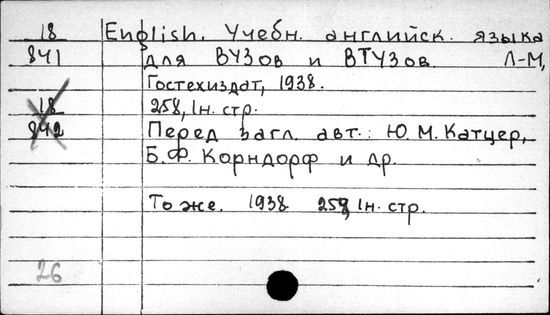 18 English. Учебн. английск. языка
841 для ВУЗов и ВТУЗов. Л-М,
Гостехиздат, 1938.
18 258, 1н. стр.
842 Перед загл. авт.: Ю.М. Катцер,
Б.Ф. Корндорф и др.
То же. 1938. 259, 1н. стр.
26